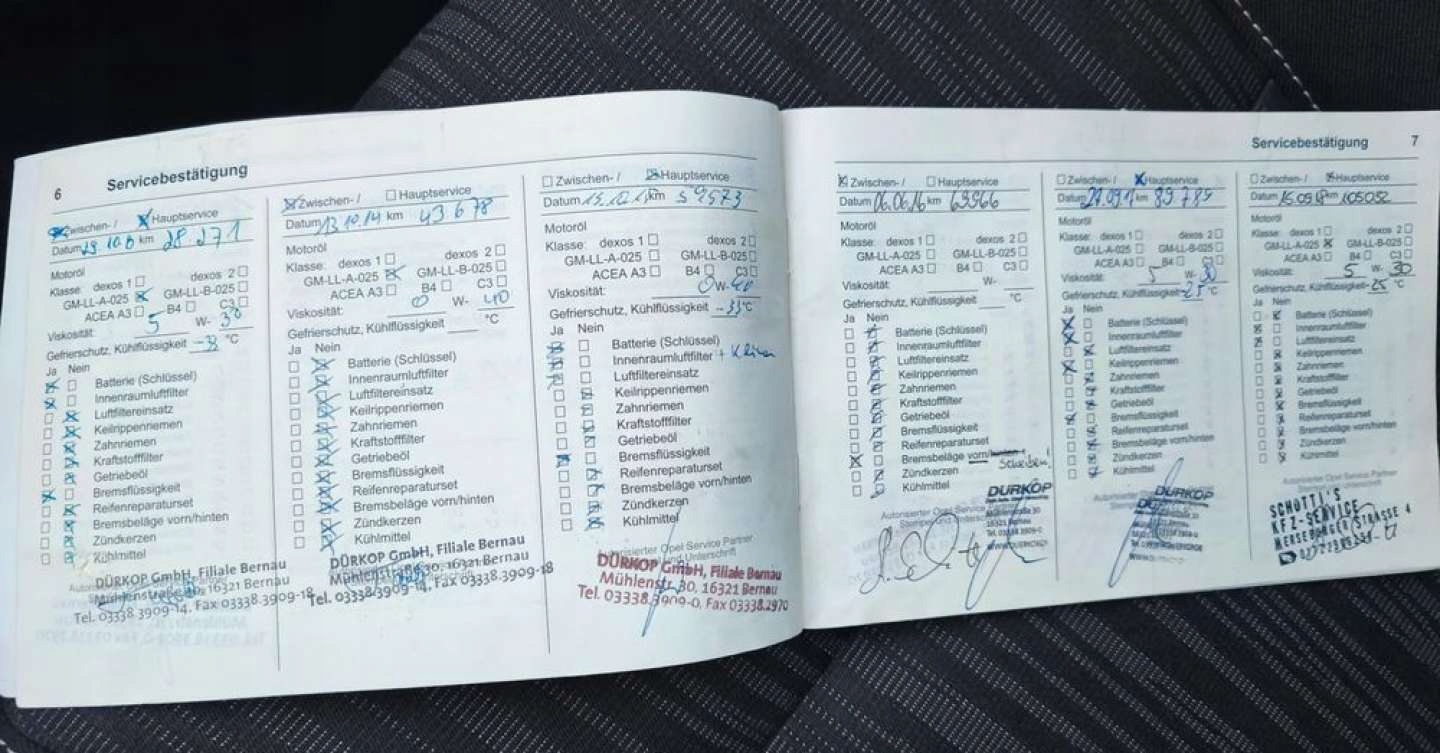 6 Servicebestätigung
Zwischen- / Hauptservice
Datum km 28.271
Motoröl
Klasse: dexos 1 dexos 2
GM-LL-A-025 GM-LL-B-025
ACEA A3 B4 C3
Viskosität: 5 W- 30
Gefrierschutz, Kühlflüssigkeit °C
Ja Nein
Batterie (Schlüssel)
Innenraumluftfilter
Luftfiltereinsatz
Keilrippenriemen
Zahnriemen
Kraftstofffilter
Getriebeöl
Bremsflüssigkeit
Reifenreparaturset
Bremsbeläge vorn/hinten
Zündkerzen
Kühlmittel
DÜRKOP GmbH, Filiale Bernau
Mühlenstraße 30, 16321 Bernau
Tel. 03338.3909-14, Fax 03338.3909-18
Zwischen- / Hauptservice
Datum 13 10.14 km 43 678
Motoröl
Klasse: dexos 1 dexos 2
GM-LL-A-025 GM-LL-B-025
ACEA A3 B4 C3
Viskosität: 0 W- 40
Gefrierschutz, Kühlflüssigkeit °C
Ja Nein
Batterie (Schlüssel)
Innenraumluftfilter
Luftfiltereinsatz
Keilrippenriemen
Zahnriemen
Kraftstofffilter
Getriebeöl
Bremsflüssigkeit
Reifenreparaturset
Bremsbeläge vorn/hinten
Zündkerzen
Kühlmittel
DÜRKOP GmbH, Filiale Bernau
Mühlenstraße 30, 16321 Bernau
Tel. 03338.3909-14, Fax 03338.3909-18
Zwischen- / Hauptservice
Datum km 59573
Motoröl
Klasse: dexos 1 dexos 2
GM-LL-A-025 GM-LL-B-025
ACEA A3 B4 C3
Viskosität: 0 W- 40
Gefrierschutz, Kühlflüssigkeit -33 °C
Ja Nein
Batterie (Schlüssel)
Innenraumluftfilter + Klima
Luftfiltereinsatz
Keilrippenriemen
Zahnriemen
Kraftstofffilter
Getriebeöl
Bremsflüssigkeit
Reifenreparaturset
Bremsbeläge vorn/hinten
Zündkerzen
Kühlmittel
Autorisierter Opel Service Partner
Stempel und Unterschrift
DÜRKOP GmbH, Filiale Bernau
Mühlenstr. 30, 16321 Bernau
Tel. 03338.3909-0, Fax 03338.2970
Servicebestätigung 7
Zwischen- / Hauptservice
Datum 06.06.16 km 69966
Motoröl
Klasse: dexos 1 dexos 2
GM-LL-A-025 GM-LL-B-025
ACEA A3 B4 C3
Viskosität: W-
Gefrierschutz, Kühlflüssigkeit °C
Ja Nein
Batterie (Schlüssel)
Innenraumluftfilter
Luftfiltereinsatz
Keilrippenriemen
Zahnriemen
Kraftstofffilter
Getriebeöl
Bremsflüssigkeit
Reifenreparaturset
Bremsbeläge vorn/hinten
Scheiben!
Zündkerzen
Kühlmittel
Autorisierter Opel Service
DÜRKOP
16321 Bernau
Zwischen- / Hauptservice
Datum km 89789
Motoröl
Klasse: dexos 1 dexos 2
GM-LL-A-025 GM-LL-B-025
ACEA A3 B4 C3
Viskosität: 5 W- 30
Gefrierschutz, Kühlflüssigkeit -25 °C
Ja Nein
Batterie (Schlüssel)
Innenraumluftfilter
Luftfiltereinsatz
Keilrippenriemen
Zahnriemen
Kraftstofffilter
Getriebeöl
Bremsflüssigkeit
Reifenreparaturset
Bremsbeläge vorn/hinten
Zündkerzen
Kühlmittel
DÜRKOP
16321 Bernau
Zwischen- / Hauptservice
Datum 15.09.18 km 105052
Motoröl
Klasse: dexos 1 dexos 2
GM-LL-A-025 GM-LL-B-025
ACEA A3 B4 C3
Viskosität: 5 W- 30
Gefrierschutz, Kühlflüssigkeit -25 °C
Ja Nein
Batterie (Schlüssel)
Innenraumluftfilter
Luftfiltereinsatz
Keilrippenriemen
Zahnriemen
Kraftstofffilter
Getriebeöl
Bremsflüssigkeit
Reifenreparaturset
Bremsbeläge vorn/hinten
Zündkerzen
Kühlmittel
Autorisierter Opel Service Partner
SCHOTTI'S
KFZ-SERVICE
MERSEBURGER STRASSE 4